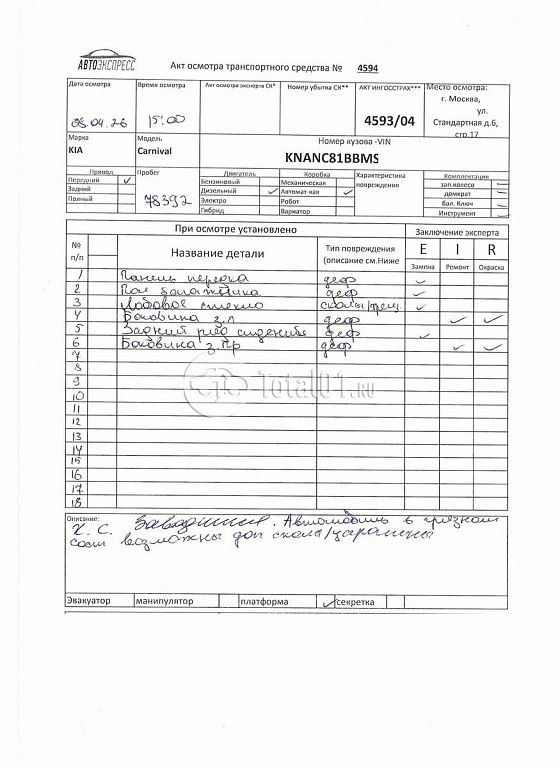 АВТОЭКСПРЕСС
Акт осмотра транспортного средства № 4594
Дата осмотра
Время осмотра
Акт осмотра эксперта СК*
Номер убытка СК**
АКТ ИНГОССТРАХ***
Место осмотра:
г. Москва,
ул.
Стандартная д.6,
стр.17
03.04.26
15:00
4593/04
Марка
Модель
Номер кузова -VIN
KIA
Carnival
KNANC81BBMS
Привод
Пробег
Двигатель
Коробка
Характеристика
повреждения
Комплектация
Передний ✓
Задний
Полный
78392
Бензиновый
Дизельный ✓
Электро
Гибрид
Механическая
Автомат-ная ✓
Робот
Вариатор
зап.колесо –
домкрат –
бал. Ключ –
Инструмент –
При осмотре установлено
Заключение эксперта
№
п/п
Название детали
Тип повреждения
(описание см.Ниже
E I R
Замена Ремонт Окраска
1 Панель передка деф ✓
2 Пол багажника деф ✓
3 Лобовое стекло сколы/трещ. ✓
4 Боковина з.л деф ✓ ✓
5 Задний ряд сидений деф ✓
6 Боковина з.пр деф ✓ ✓
7
8
9
10
11
12
13
14
15
16
17
18
Total01.RU
Описание:
Х. С. Автомобиль в грязном
сост возможны доп скола/царапины
Эвакуатор манипулятор платформа ✓ секретка